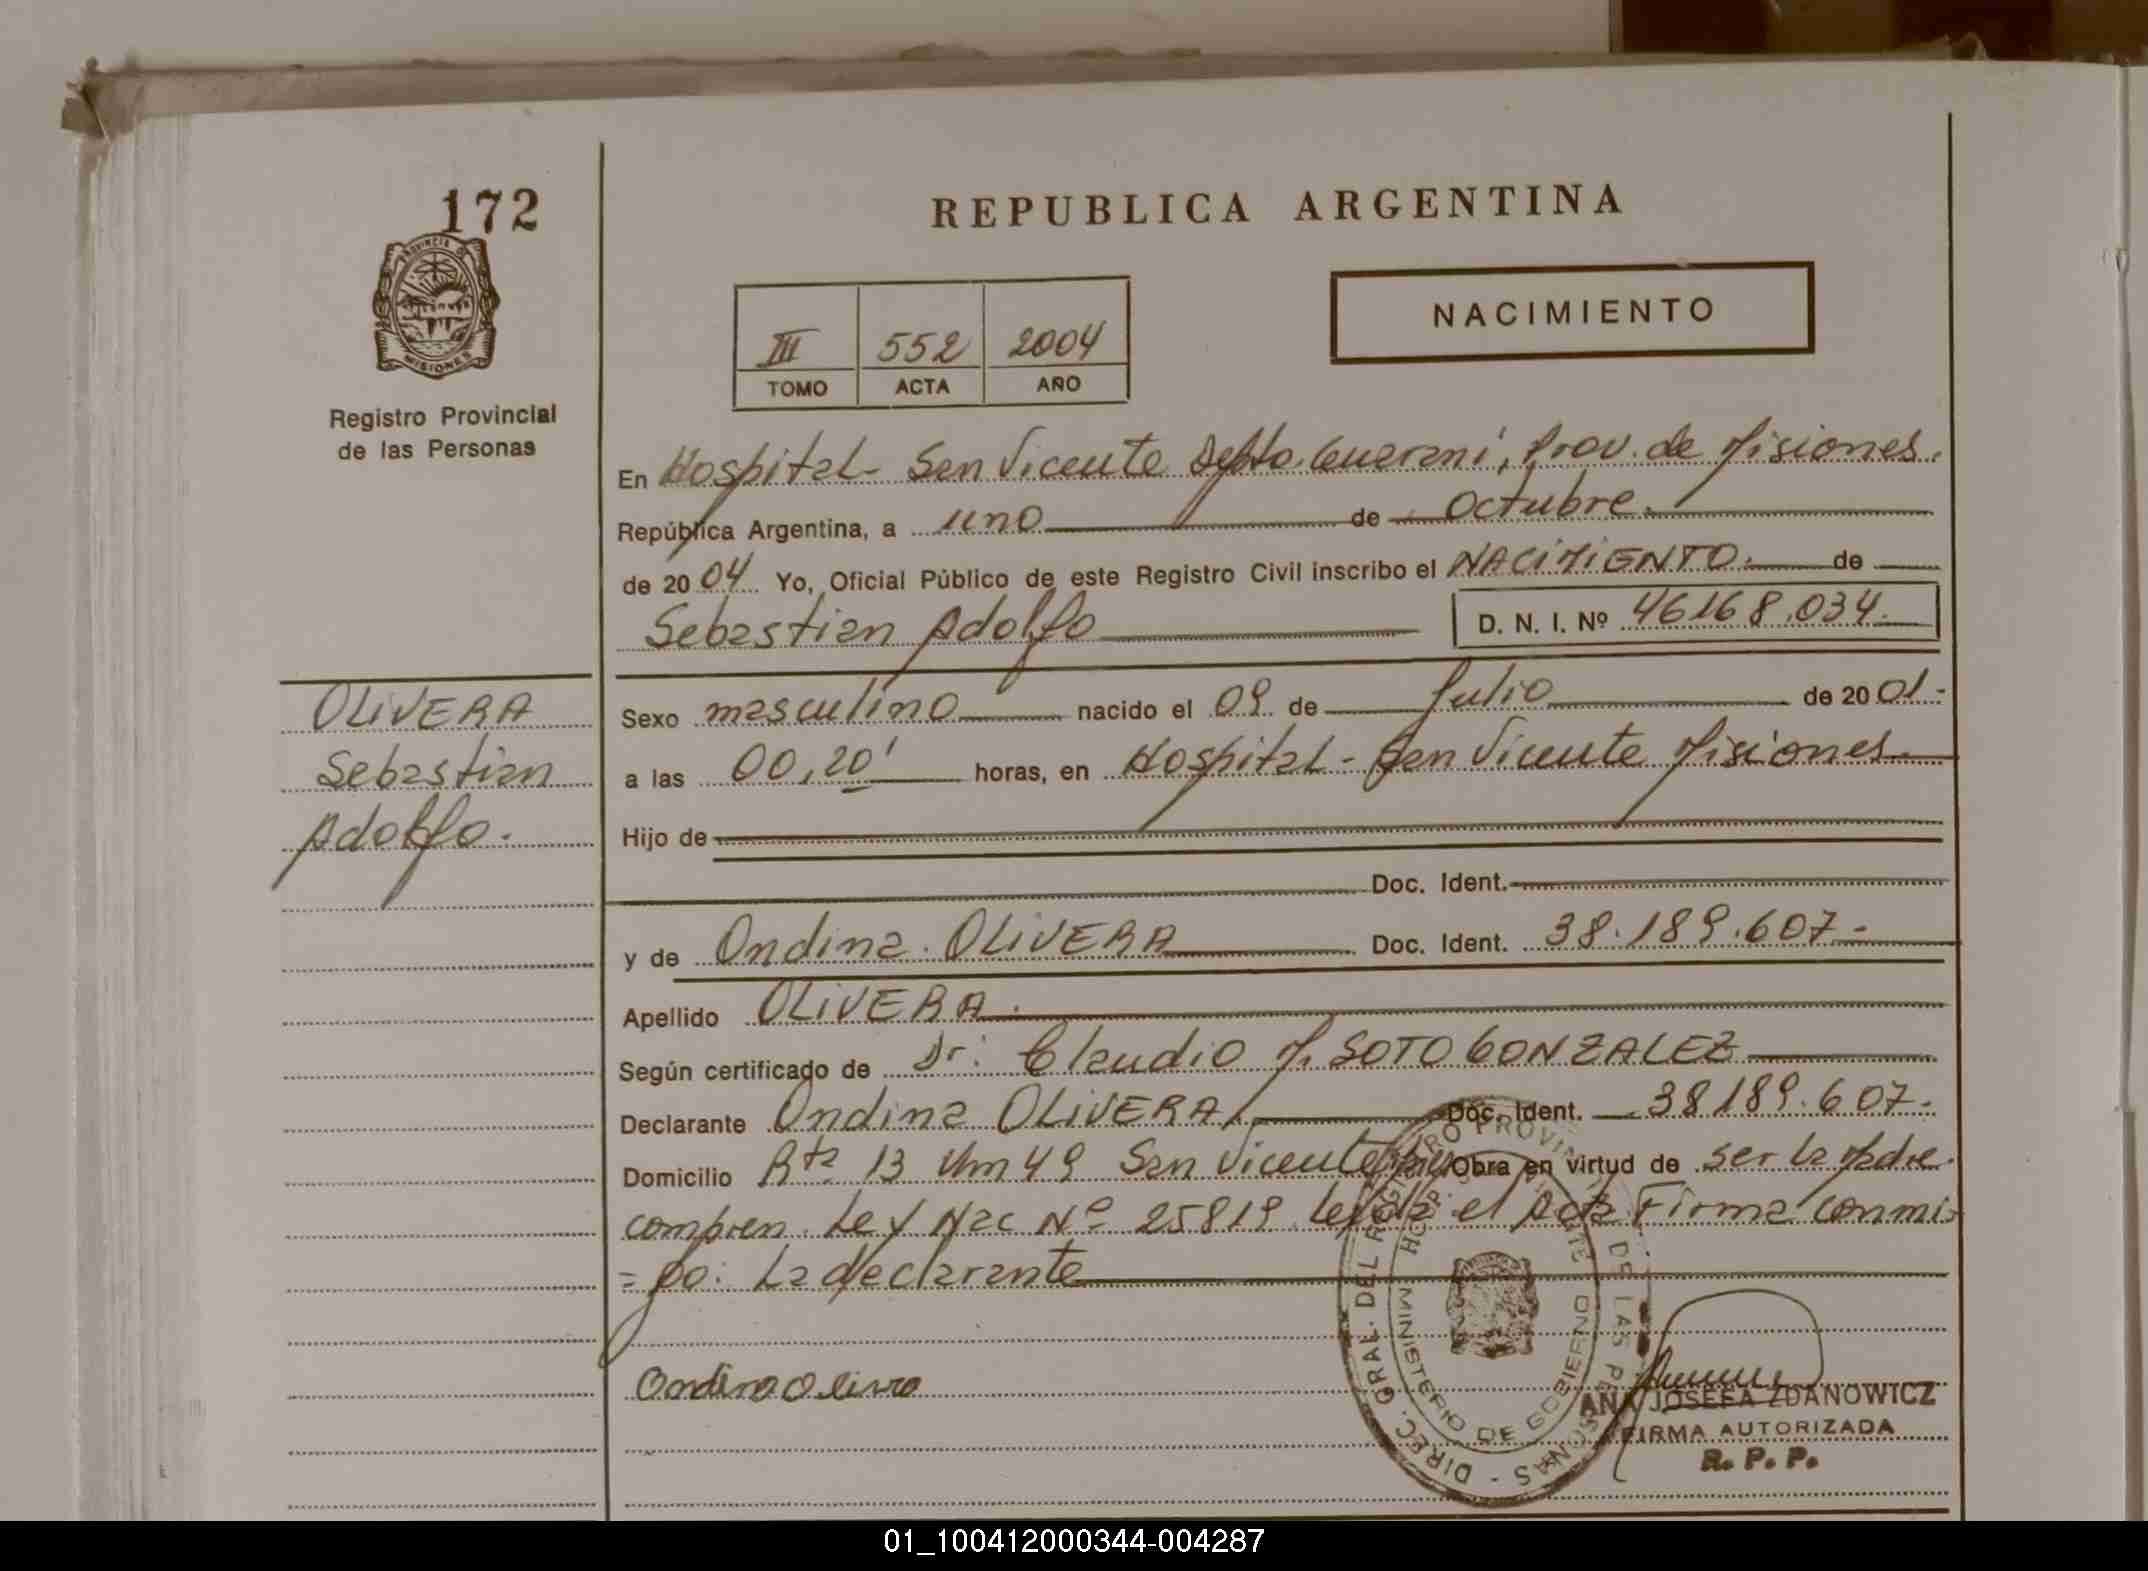 172
PROVINCIA DE
MISIONES
Registro Provincial
de las Personas
REPUBLICA ARGENTINA
III 552 2004
TOMO ACTA AÑO
NACIMIENTO
En Hospital - San Vicente Depto. Guarani, Prov. de Misiones.
República Argentina, a uno de Octubre.
de 2004 Yo, Oficial Público de este Registro Civil inscribo el NACIMIENTO. de
Sebastian Adolfo D. N. I. Nº 46168.034.
OLIVERA
Sebastian
Adolfo.
Sexo masculino nacido el 09 de Julio de 2001.-
a las 00,20' horas, en Hospital - San Vicente Misiones.
Hijo de
Doc. Ident.
y de Ondina. OLIVERA Doc. Ident. 38.189.607.-
Apellido OLIVERA.
Según certificado de Dr. Claudio M. SOTO GONZALEZ
Declarante Ondina OLIVERA. Doc. Ident. 38189.607.
Domicilio Rta 13 Km 49 San Vicente Obra en virtud de ser la Madre.
compren. Ley Nac Nº 25819 Leida el Acta Firma conmi-
=go: La declarante
Ondina Olivera
DIREC. GRAL. DEL REGISTRO PROVINCIAL DE LAS PERSONAS -
MINISTERIO DE GOBIERNO
ANA JOSEFA ZDANOWICZ
FIRMA AUTORIZADA
R. P. P.
01_100412000344-004287